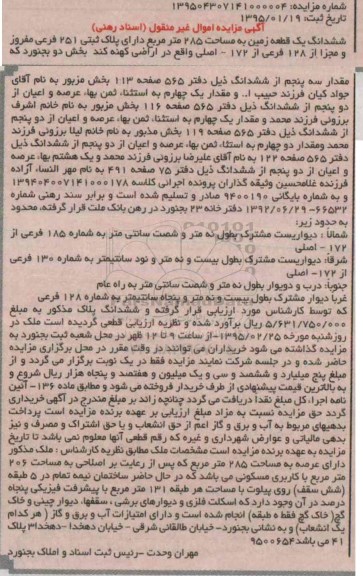 شماره مزایده: ۱۳۹۵۰۴۳۰۷۱۴۱۰۰۰۰۰۴
تاریخ ثبت: ۱۳۹۵/۰۱/۱۹
آگهی مزایده اموال غیر منقول (اسناد رهنی)
ششدانگ یک قطعه زمین به مساحت ۲۸۵ متر مربع دارای پلاک ثبتی ۲۵۱ فرعی مفروز
و مجزا از ۱۲۸ فرعی از ۱۷۲ - اصلی واقع در اراضی کهنه کند بخش دو بجنورد که
مقدار سه پنجم از ششدانگ ذیل دفتر ۵۶۵ صفحه ۱۱۳ بخش مزبور به نام آقای
جواد کیان فرزند حبیب ا.. و مقدار یک چهارم به استثناء ثمن بها، عرصه و اعیان از
دو پنجم از ششدانگ ذیل دفتر ۵۶۵ صفحه ۱۱۶ بخش مزبور به نام خانم اشرف
برزونی فرزند محمد و مقدار یک چهارم به استثناء ثمن بها، عرصه و اعیان از دو پنجم
از ششدانگ ذیل دفتر ۵۶۵ صفحه ۱۱۹ بخش مذبور به نام خانم لیلا برزونی فرزند
محمد ومقدار دو چهارم به استثاء ثمن بها، عرصه و اعیان از دو پنجم از ششدانگ ذیل
دفتر ۵۶۵ صفحه ۱۲۲ به نام آقای علیرضا برزونی فرزند محمد و یک هشتم بها، عرصه
و اعیان از دو پنجم از ششدانگ ذیل دفتر ۷۵ صفحه ۴۹۱ به نام مهر النساء آزاده
فرزنده غلامحسین وثیقه گذاران پرونده اجرائی کلاسه ۱۳۹۴۰۴۰۰۷۱۴۱۰۰۰۱۷۸
و به شماره بایگانی ۹۴۰۰۱۹۰ صادر و تسلیم شده است و برابر سند رهنی شماره
۶۶۵۳۲- ۱۳۹۲/۰۶/۲۹ دفتر خانه ۲۳ بجنورد در رهن بانک ملت قرار گرفته، محدود
به حدود زیر:
شمالا : دیواریست مشترک بطول نه متر و شصت سانتی متر به شماره ۱۸۵ فرعی از
۱۷۲ - اصلی
شرقا: دیواریست مشترک بطول بیست و نه متر و نود سانتیمتر به شماره ۱۳۰ فرعی
از ۱۷۲- اصلی
جنوبا: درب و دیوار بطول نه متر و شصت سانتی متر به راه عام
غربا دیوار مشترک بطول بیست و نه متر و پنجاه سانتیمتر به شماره ۱۲۸ فرعی
که توسط کارشناس مورد ارزیابی قرار گرفته و ششدانگ پلاک مذکور به مبلغ
۵/۶۳۱/۷۵۰/۰۰۰ ریال برآورد شده و نظریه ارزیابی قطعی گردیده است ملک در
روزشنبه مورخه ۱۳۹۵/۰۲/۲۵-از ساعت ۹ تا ۱۲ ظهر در محل شعبه ثبت بجنورد به
مزایده گذاشته می شود خریداران می توانند در وقت مقرر در محل برگزاری مزایده
حاضر شده و در جلسه شرکت نمایند مزایده فقط در یک نوبت برگزار می گردد و از
مبلغ پنج میلیارد و ششصد و سی و یک میلیون و هفتصد و پنجاه هزار ریال شروع و
به بالاترین قیمت پیشنهادی از طرف خریدار فروخته می شود و مطابق ماده ۱۳۶- آئین
نامه اجرا، کل مبلغ نقدا دریافت می گردد چنانچه زائد بر مبلغ مندرج در آگهی خریداری
گردد حق مزایده نسبت به مازاد مبلغ ارزیابی بر عهده برنده مزایده است پرداخت
بدهیهای مربوط به آب و برق و گاز اعم از حق انشعاب و یا حق اشتراک و مصرف و نیز
بدهی مالیاتی و عوارض شهرداری و غیره که رقم قطعی آنها معلوم نمی باشد تا تاریخ
مزایده به عهده برنده مزایده است مشخصات ملک مطابق نظریه کارشناس : ملک مذکور
دارای عرصه به مساحت ۲۸۵ متر مربع که پس از رعایت بر اصلاحی به مساحت ۲۰۶
متر مربع با کاربری مسکونی می باشد که در حال حاضر ساختمان نیمه تمام در ۵ طبقه
(شش سقف) روی پیلوت با مساحت هر طبقه ۱۳۱ متر مربع با پیشرفت فیزیکی پنجاه
درصد در آن وجود دارد که اسکلت فلزی و دیوارهای برشی ، سقفها، دیوار چینی و خاک
گچ( خاک گچ فقط ۰ طبقه) انجام شده است و دارای امتیازات آب و برق و گاز ( هر کدام
یک انشعاب) و به نشانی بجنورد- خیابان طالقانی شرقی - خیابان دهخدا -دهخدا۳ پلاک
۴۱ می باشد ۹۵۰۰۶۵۴
مهران وحدت -رئیس ثبت اسناد و املاک بجنورد